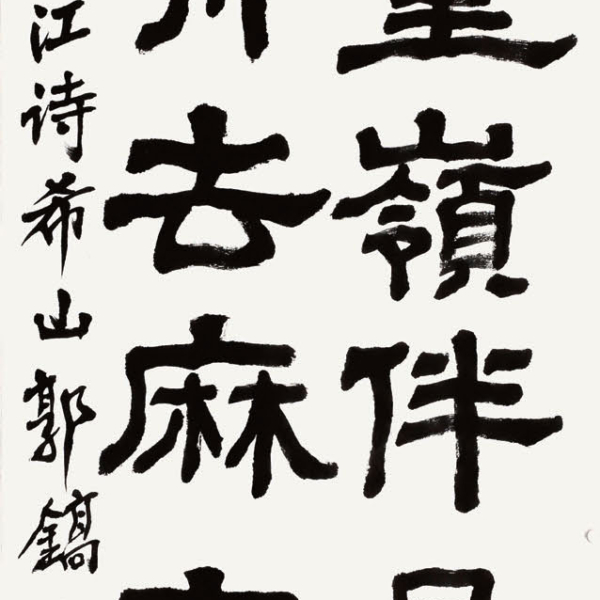 嶺伴
去麻
江诗希山郭鎬